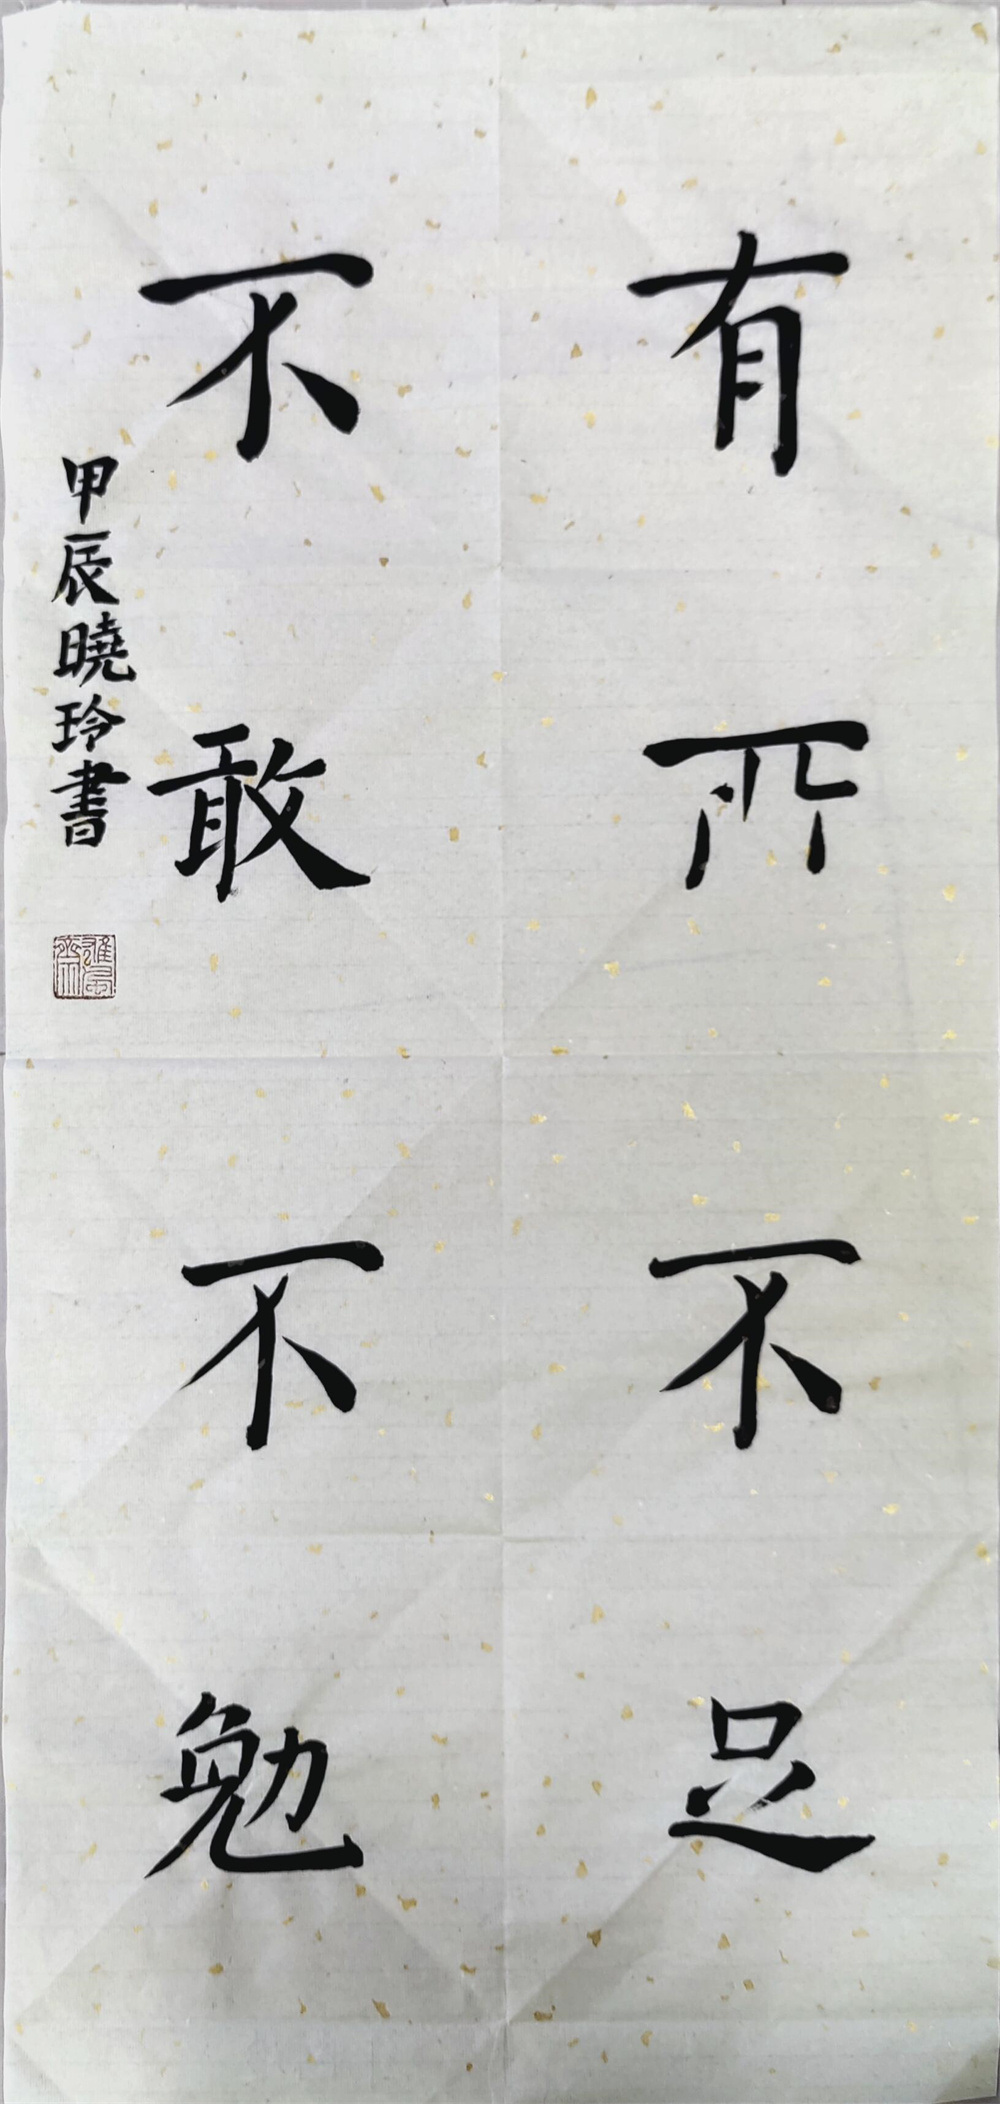 有所不足
不敢不勉
甲辰曉玲書
雅風齋